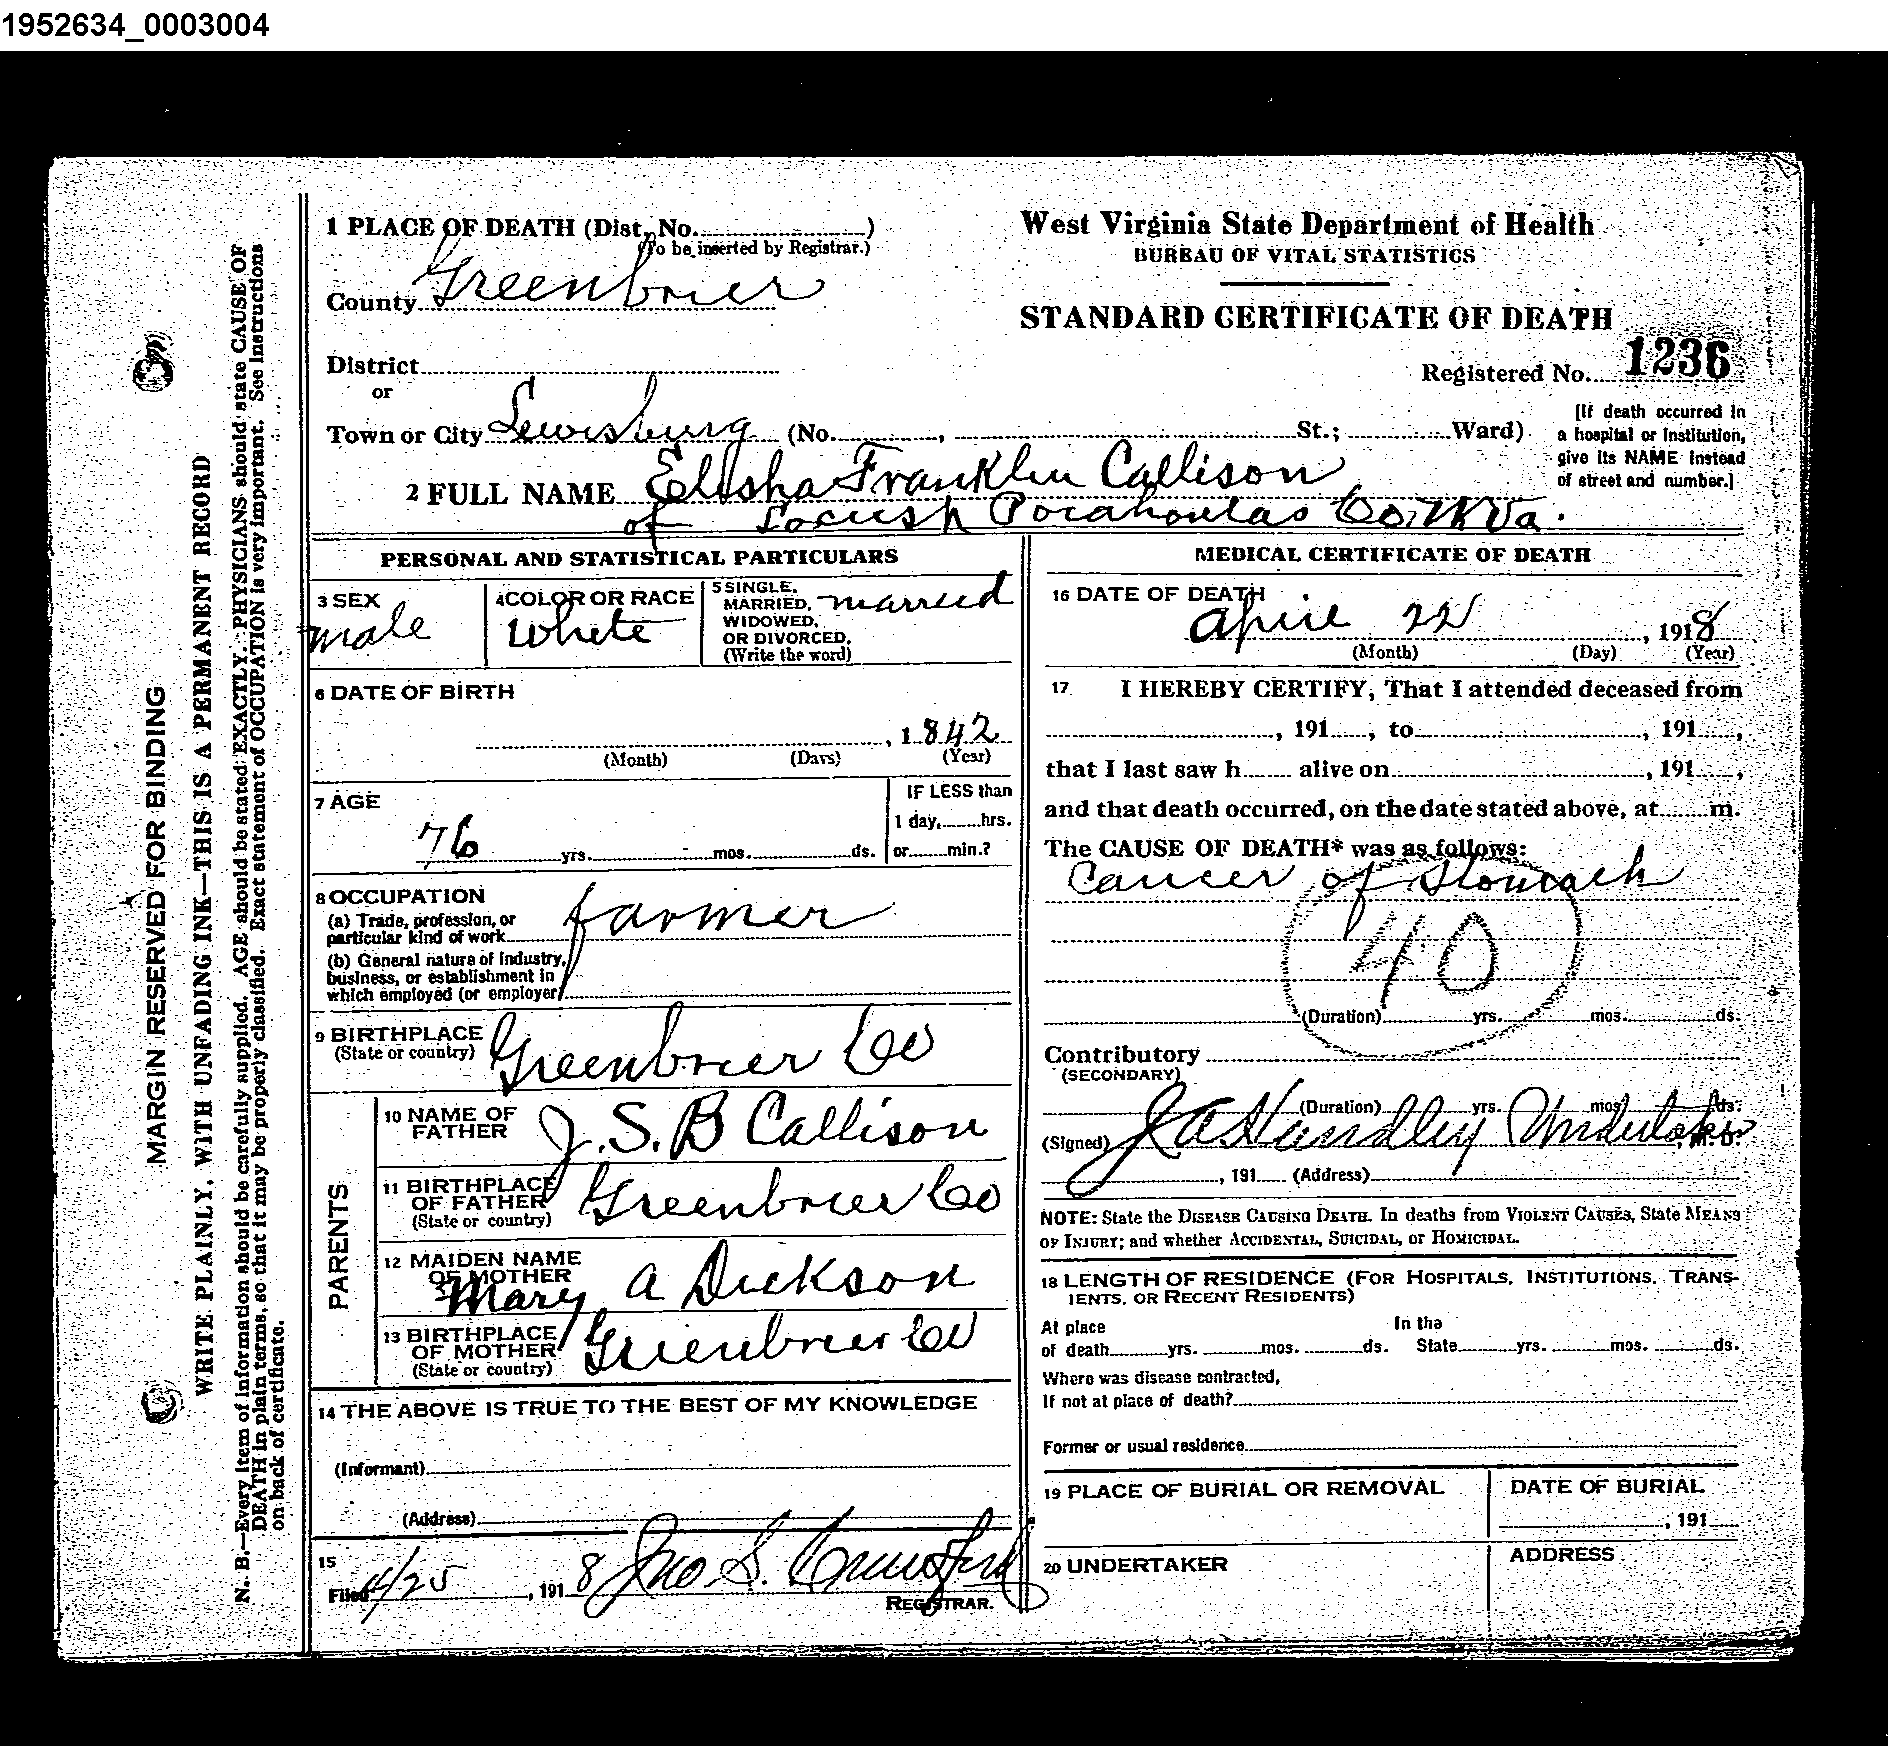 1952634_0003004
1 PLACE OF DEATH (Dist. No. )
(To be inserted by Registrar.)
County Greenbrier
District
or
Town or City Lewisburg (No. , St.; Ward)
2 FULL NAME Elisha Franklin Callison
of Locush Pocahontas Co. W Va.
West Virginia State Department of Health
BUREAU OF VITAL STATISTICS
STANDARD CERTIFICATE OF DEATH
Registered No. 1236
[If death occurred in
a hospital or institution,
give its NAME instead
of street and number.]
PERSONAL AND STATISTICAL PARTICULARS
3 SEX
male
4 COLOR OR RACE
White
5 SINGLE,
MARRIED, married
WIDOWED,
OR DIVORCED.
(Write the word)
6 DATE OF BIRTH
, 1842
(Month) (Days) (Year)
7 AGE
76 yrs. mos. ds.
IF LESS than
1 day, hrs.
or min.?
8 OCCUPATION
(a) Trade, profession, or
particular kind of work farmer
(b) General nature of industry,
business, or establishment in
which employed (or employer
9 BIRTHPLACE
(State or country) Greenbrier Co
PARENTS
10 NAME OF
FATHER J. S. B Callison
11 BIRTHPLACE
OF FATHER
(State or country) Greenbrier Co
12 MAIDEN NAME
OF MOTHER
Mary A Dickson
13 BIRTHPLACE
OF MOTHER
(State or country) Greenbrier Co
14 THE ABOVE IS TRUE TO THE BEST OF MY KNOWLEDGE
(Informant)
(Address)
15
Filed 4/25, 1918 Jno. S. Crawford
REGISTRAR.
MEDICAL CERTIFICATE OF DEATH
16 DATE OF DEATH
April 22, 1918
(Month) (Day) (Year)
17 I HEREBY CERTIFY, That I attended deceased from
, 191 , to , 191 ,
that I last saw h alive on , 191 ,
and that death occurred, on the date stated above, at m.
The CAUSE OF DEATH* was as follows:
Cancer of Stomach
40
(Duration) yrs. mos. ds.
Contributory
(SECONDARY)
(Duration) yrs. mos. ds.
(Signed) J A Handley Undertaker, M.D.
, 191 (Address)
NOTE: State the DISEASE CAUSING DEATH. In deaths from VIOLENT CAUSES, State MEANS
OF INJURY; and whether ACCIDENTAL, SUICIDAL, or HOMICIDAL.
18 LENGTH OF RESIDENCE (FOR HOSPITALS, INSTITUTIONS, TRANS-
IENTS, OR RECENT RESIDENTS)
At place In the
of death yrs. mos. ds. State yrs. mos. ds.
Where was disease contracted,
If not at place of death?
Former or usual residence
19 PLACE OF BURIAL OR REMOVAL
DATE OF BURIAL
, 191
20 UNDERTAKER
ADDRESS
MARGIN RESERVED FOR BINDING
WRITE PLAINLY, WITH UNFADING INK—THIS IS A PERMANENT RECORD
N. B.—Every item of information should be carefully supplied. AGE should be stated EXACTLY. PHYSICIANS should state CAUSE OF
DEATH in plain terms, so that it may be properly classified. Exact statement of OCCUPATION is very important. See instructions
on back of certificate.